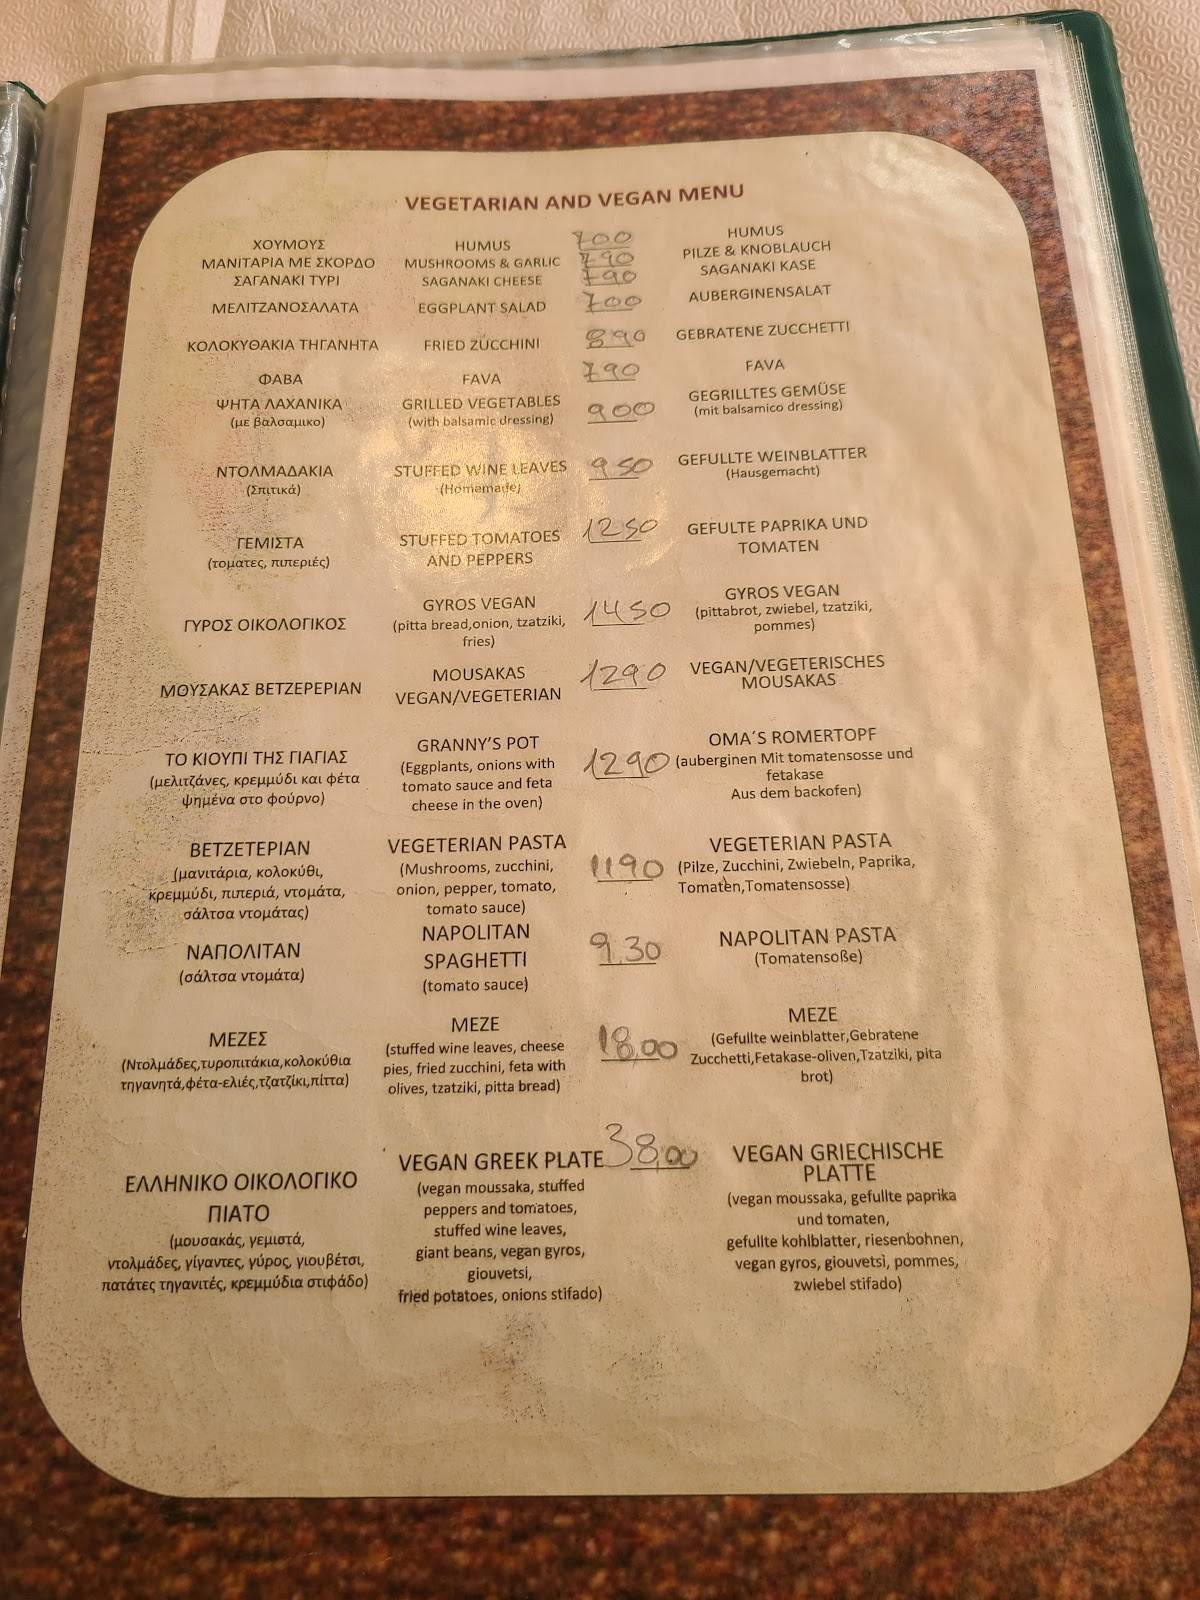 VEGETARIAN AND VEGAN MENU
ΧΟΥΜΟΥΣ HUMUS 700 HUMUS
ΜΑΝΙΤΑΡΙΑ ΜΕ ΣΚΟΡΔΟ MUSHROOMS & GARLIC 790 PILZE & KNOBLAUCH
ΣΑΓΑΝΑΚΙ ΤΥΡΙ SAGANAKI CHEESE 790 SAGANAKI KASE
ΜΕΛΙΤΖΑΝΟΣΑΛΑΤΑ EGGPLANT SALAD 700 AUBERGINENSALAT
ΚΟΛΟΚΥΘΑΚΙΑ ΤΗΓΑΝΗΤΑ FRIED ZUCCHINI 890 GEBRATENE ZUCCHETTI
ΦΑΒΑ FAVA 790 FAVA
ΨΗΤΑ ΛΑΧΑΝΙΚΑ GRILLED VEGETABLES 900 GEGRILLTES GEMÜSE
(με βαλσαμικο) (with balsamic dressing) (mit balsamico dressing)
ΝΤΟΛΜΑΔΑΚΙΑ STUFFED WINE LEAVES 950 GEFULLTE WEINBLATTER
(Σπιτικά) (Homemade) (Hausgemacht)
ΓΕΜΙΣΤΑ STUFFED TOMATOES 1250 GEFULTE PAPRIKA UND
(τοματες, πιπεριές) AND PEPPERS TOMATEN
GYROS VEGAN 1450 GYROS VEGAN
ΓΥΡΟΣ ΟΙΚΟΛΟΓΙΚΟΣ (pitta bread,onion, tzatziki, (pittabrot, zwiebel, tzatziki,
fries) pommes)
MOUSAKAS 1290 VEGAN/VEGETERISCHES
ΜΟΥΣΑΚΑΣ ΒΕΤΖΕΡΕΡΙΑΝ VEGAN/VEGETERIAN MOUSAKAS
ΤΟ ΚΙΟΥΠΙ ΤΗΣ ΓΙΑΓΙΑΣ GRANNY'S POT 1290 OMA´S ROMERTOPF
(μελιτζάνες, κρεμμύδι και φέτα (Eggplants, onions with (auberginen Mit tomatensosse und
ψημένα στο φούρνο) tomato sauce and feta fetakase
cheese in the oven) Aus dem backofen)
ΒΕΤΖΕΤΕΡΙΑΝ VEGETERIAN PASTA 1190 VEGETERIAN PASTA
(μανιτάρια, κολοκύθι, (Mushrooms, zucchini, (Pilze, Zucchini, Zwiebeln, Paprika,
κρεμμύδι, πιπεριά, ντομάτα, onion, pepper, tomato, Tomaten,Tomatensosse)
σάλτσα ντομάτας) tomato sauce)
ΝΑΠΟΛΙΤΑΝ NAPOLITAN 9.30 NAPOLITAN PASTA
(σάλτσα ντομάτα) SPAGHETTI (Tomatensoße)
(tomato sauce)
ΜΕΖΕΣ MEZE 18,00 MEZE
(Ντολμάδες,τυροπιτάκια,κολοκύθια (stuffed wine leaves, cheese (Gefullte weinblatter,Gebratene
τηγανητά,φέτα-ελιές,τζατζίκι,πίττα) pies, fried zucchini, feta with Zucchetti,Fetakase-oliven,Tzatziki, pita
olives, tzatziki, pitta bread) brot)
VEGAN GREEK PLATE 38,00 VEGAN GRIECHISCHE
ΕΛΛΗΝΙΚΟ ΟΙΚΟΛΟΓΙΚΟ (vegan moussaka, stuffed PLATTE
ΠΙΑΤΟ peppers and tomatoes, (vegan moussaka, gefullte paprika
(μουσακάς, γεμιστά, stuffed wine leaves, und tomaten,
ντολμάδες, γίγαντες, γύρος, γιουβέτσι, giant beans, vegan gyros, gefullte kohlblatter, riesenbohnen,
πατάτες τηγανιτές, κρεμμύδια στιφάδο) giouvetsi, vegan gyros, giouvetsi, pommes,
fried potatoes, onions stifado) zwiebel stifado)